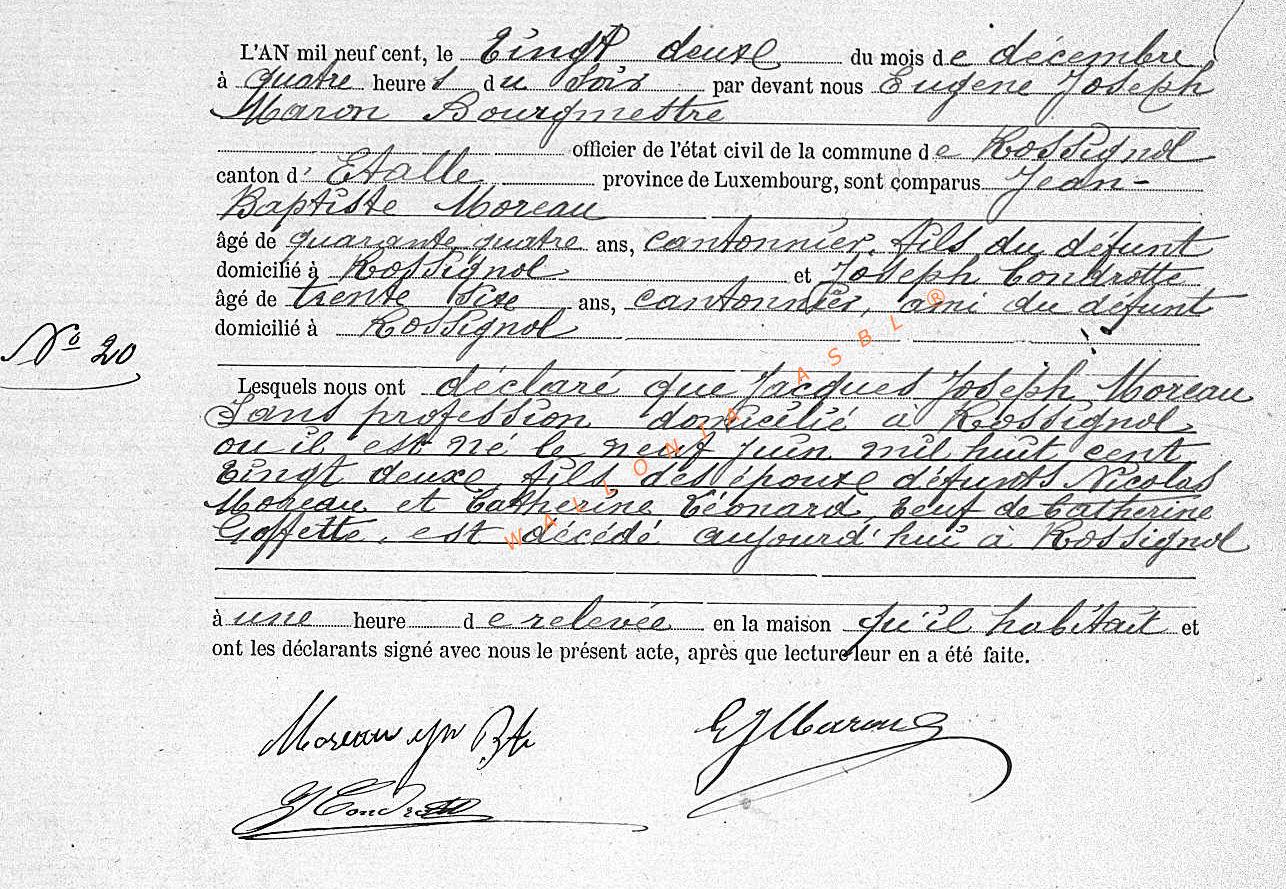 L'AN mil neuf cent, le Vingt deuxe du mois de décembre
à quatre heures du soir par devant nous Eugène Joseph
Maron Bourgmestre
officier de l'état civil de la commune de Rossignol
canton d'Etalle province de Luxembourg, sont comparus Jean-
Baptiste Moreau
âgé de quarante quatre ans, cantonnier, fils du défunt
domicilié à Rossignol et Joseph Condrotte
âgé de trente sixe ans, cantonnier, ami du défunt
domicilié à Rossignol
N° 20
Lesquels nous ont déclaré que Jacques Joseph Moreau
Sans profession domicilié à Rossignol
ou il est né le neuf Juin mil huit cent
Vingt deuxe, fils des épouxe défunts Nicolas
Moreau et Catherine Léonard, Veuf de Catherine
Goffette, est décédé aujourd'hui à Rossignol
à une heure de relevée en la maison qu'il habitait et
ont les déclarants signé avec nous le présent acte, après que lecture leur en a été faite.
Moreau Jn Bte
EJMaron
J Condrotte
WALLONIA ASBL ®